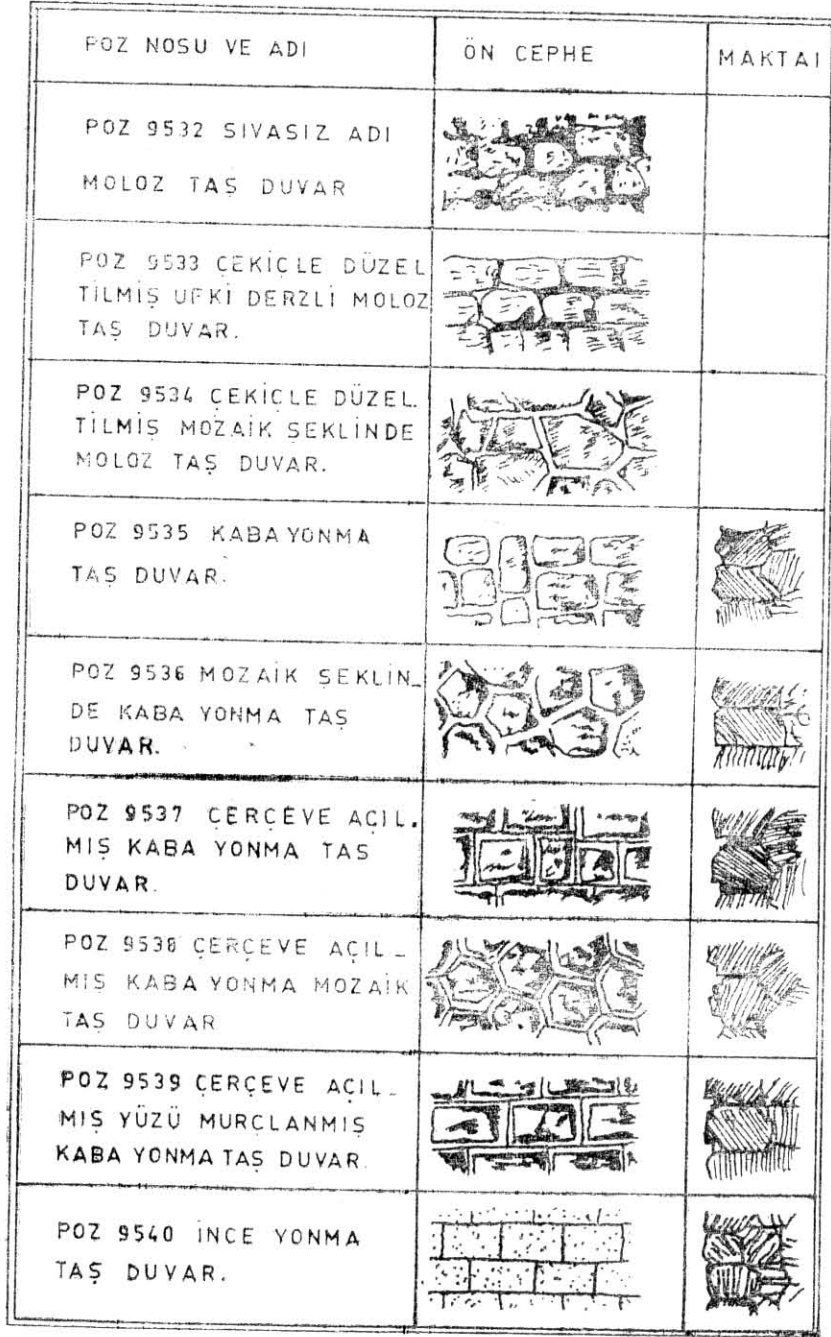 POZ NOSU VE ADI
ÖN CEPHE
MAKTAI
POZ 9532 SIVASIZ ADI
MOLOZ TAŞ DUVAR
POZ 9533 ÇEKİÇLE DÜZEL
TİLMİŞ UFKİ DERZLİ MOLOZ
TAŞ DUVAR.
POZ 9534 ÇEKİÇLE DÜZEL.
TİLMİŞ MOZAİK ŞEKLİNDE
MOLOZ TAŞ DUVAR.
POZ 9535 KABA YONMA
TAŞ DUVAR.
POZ 9536 MOZAİK ŞEKLİN_
DE KABA YONMA TAŞ
DUVAR.
POZ 9537 ÇERÇEVE AÇIL.
MIŞ KABA YONMA TAŞ
DUVAR.
POZ 9538 ÇERÇEVE AÇIL_
MIŞ KABA YONMA MOZAİK
TAŞ DUVAR
POZ 9539 ÇERÇEVE AÇIL_
MIŞ YÜZÜ MURÇLANMIŞ
KABA YONMA TAŞ DUVAR.
POZ 9540 İNCE YONMA
TAŞ DUVAR.